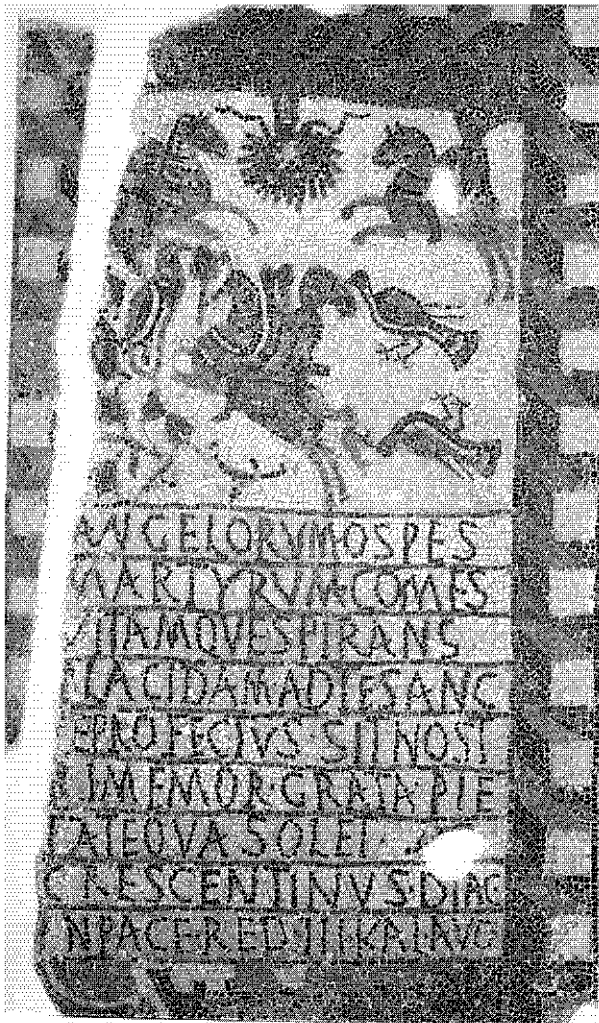 ANGELORVM OSPES
MARTYRVM COMES
VITAMQVE SPIRANS
PLACIDAM AD TE SANC
TE PROFECTVS · SIT NOST
RI MEMOR · GRATA · PIE
TATE QVA SOLET ·
CRESCENTINVS · DIAC
IN PACE · RED · III KAL AVG